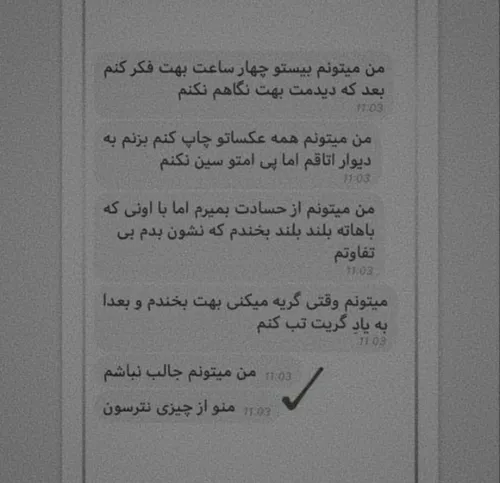 من میتونم بیستو چهار ساعت بهت فکر کنم
بعد که دیدمت بهت نگاهم نکنم
11:03
من میتونم همه عکساتو چاپ کنم بزنم به
دیوار اتاقم اما پی امتو سین نکنم
11:03
من میتونم از حسادت بمیرم اما با اونی که
باهاته بلند بلند بخندم که نشون بدم بی
تفاوتم
11:03
میتونم وقتی گریه میکنی بهت بخندم و بعدا
به یادِ گریت تب کنم
11:03
من میتونم جالب نباشم 11:03
منو از چیزی نترسون 11:03